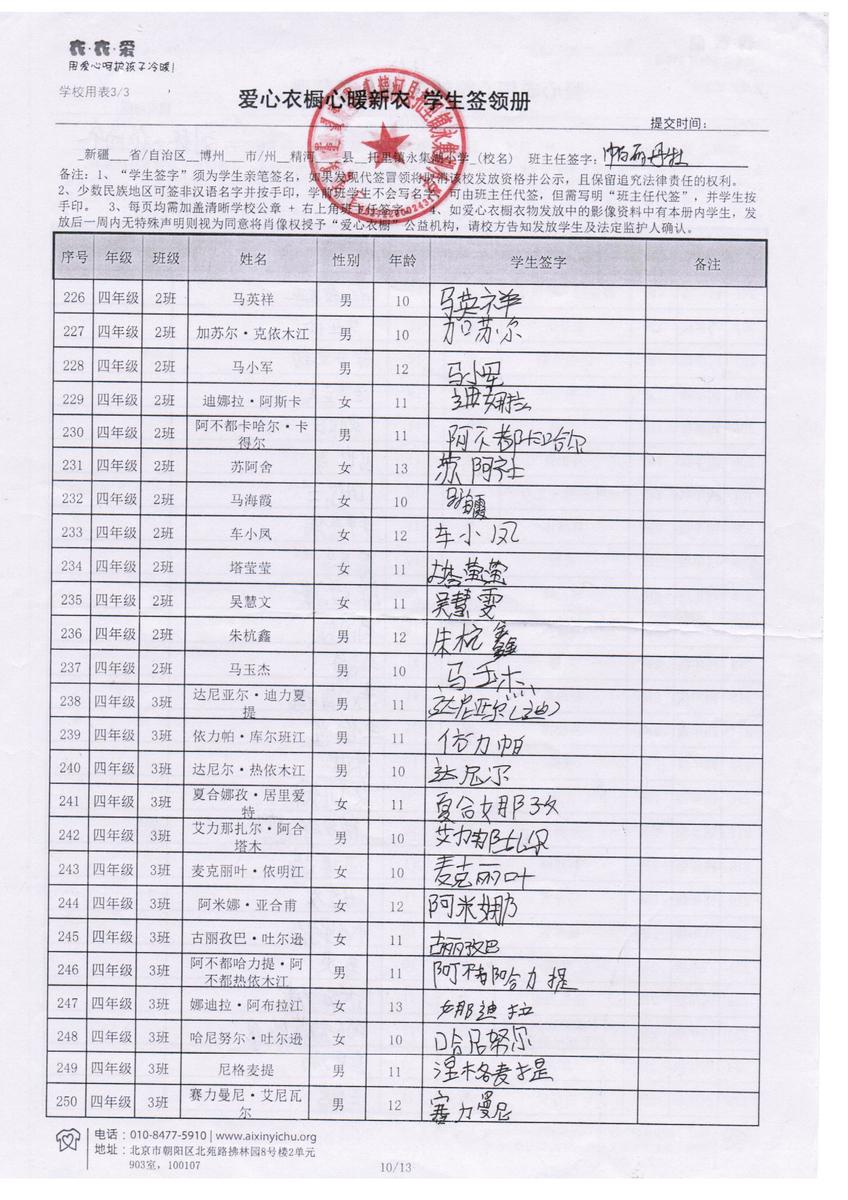 衣·衣·爱
用爱心呵护孩子冷暖!
学校用表3/3
爱心衣橱心暖新衣 学生签领册
提交时间:
_新疆___省/自治区__博州___市/州__精河___县__托里镇永集湖小学_(校名) 班主任签字:
备注:1、“学生签字”须为学生亲笔签名,如果发现代签冒领将取消该校发放资格并公示,且保留追究法律责任的权利。
2、少数民族地区可签非汉语名字并按手印,学前班学生不会写名字,可由班主任代签,但需写明“班主任代签”,并学生按
手印。 3、每页均需加盖清晰学校公章 + 右上角班主任签字。 4、如爱心衣橱衣物发放中的影像资料中有本册内学生,发
放后一周内无特殊声明则视为同意将肖像权授予“爱心衣橱”公益机构,请校方告知发放学生及法定监护人确认。
序号 年级 班级 姓名 性别 年龄 学生签字 备注
226 四年级 2班 马英祥 男 10 马英祥
227 四年级 2班 加苏尔·克依木江 男 10 加苏尔
228 四年级 2班 马小军 男 12 马小军
229 四年级 2班 迪娜拉·阿斯卡 女 11 迪娜拉
230 四年级 2班 阿不都卡哈尔·卡得尔 男 11 阿不都卡哈尔
231 四年级 2班 苏阿舍 女 13 苏阿社
232 四年级 2班 马海霞 女 10 马海霞
233 四年级 2班 车小凤 女 12 车小凤
234 四年级 2班 塔莹莹 女 11 塔莹莹
235 四年级 2班 吴慧文 女 11 吴慧雯
236 四年级 2班 朱杭鑫 男 12 朱杭鑫
237 四年级 2班 马玉杰 男 10 马玉杰
238 四年级 3班 达尼亚尔·迪力夏提 男 11 达尼亚尔(迪)
239 四年级 3班 依力帕·库尔班江 男 11 依力帕
240 四年级 3班 达尼尔·热依木江 男 10 达尼尔
241 四年级 3班 夏合娜孜·居里爱特 女 11 夏合娜孜
242 四年级 3班 艾力那扎尔·阿合塔木 男 10 艾力那扎尔
243 四年级 3班 麦克丽叶·依明江 女 10 麦克丽叶
244 四年级 3班 阿米娜·亚合甫 女 12 阿米娜
245 四年级 3班 古丽孜巴·吐尔逊 女 11 古丽孜巴
246 四年级 3班 阿不都哈力提·阿不都热依木江 男 11 阿不都哈力提
247 四年级 3班 娜迪拉·阿布拉江 女 13 娜迪拉
248 四年级 3班 哈尼努尔·吐尔逊 女 10 哈尼努尔
249 四年级 3班 尼格麦提 男 11 涅格麦提
250 四年级 3班 赛力曼尼·艾尼瓦尔 男 12 赛力曼尼
电话:010-8477-5910 | www.aixinyichu.org
地址:北京市朝阳区北苑路拂林园8号楼2单元
903室,100107
10/13